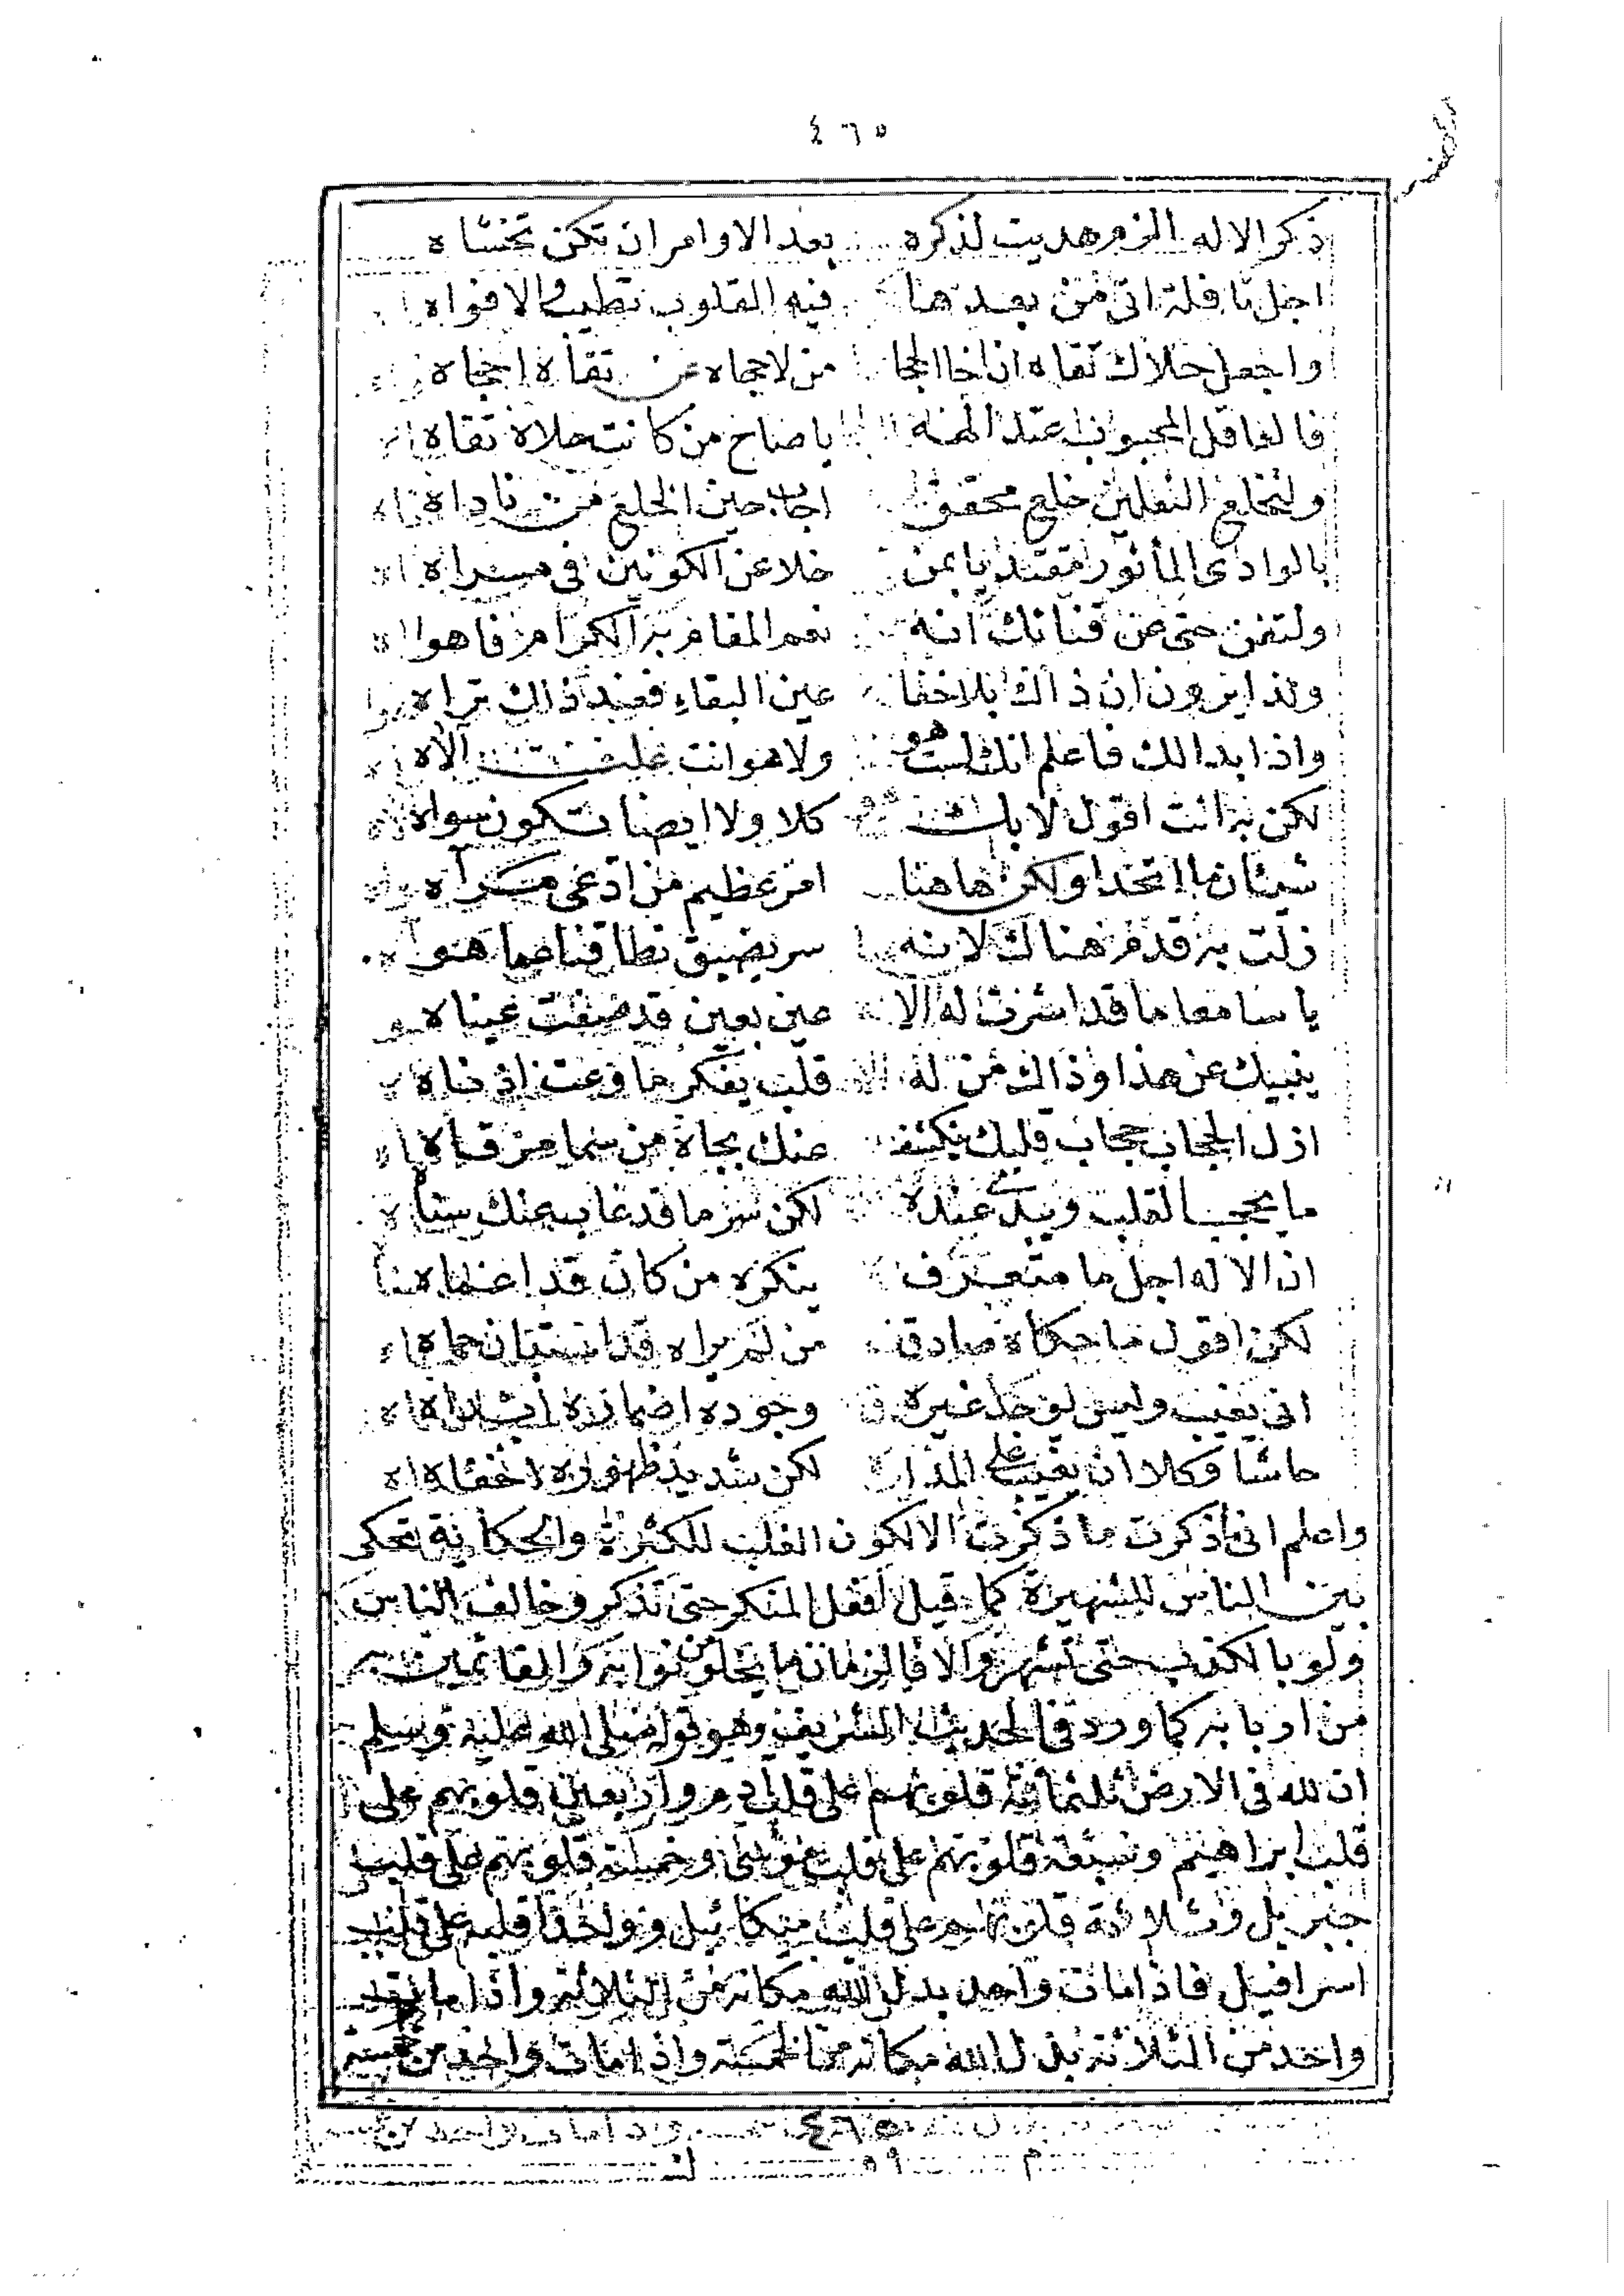 ٤٦٥
ذكر الاله الزم هديت لذكره بعد الاوامر ان تكن تخشاه
اجل نافلة اتى من بعدها فيه القلوب تطيب والافواه
واجعل حلاك تقاه ان اخا الحجا من لاحجاه عن تقاه احجاه
فالعاقل المحبوب عند الهه يا صاح من كانت حلاه تقاه
ولتخلع النعلين خلع محقق اجاب حين الخلع من ناداه
بالوادى المأثور مقتديا بمن خلا عن الكونين فى مسراه
ولتفن حتى عن فنائك انه نعم المقام به الكرام فاهوا
ولذا يرون ان ذاك بلا خفا عين البقاء فعند ذاك تراه
واذا بدا لك فاعلم انك لست هو ولا هو انت الاه
لكن به انت اقول لا بلست كلا ولا ايضا تكون سواه
شيئان ما اتحدا ولكن هاهنا امر عظيم من ادعى مرآه
زلت به قدم هناك لانه سر يضيق نطاقنا عما هو
يا سامعا ما قد اشرت له الا عين بعين قد صفت عيناه
ينبيك عن هذا وذاك من له قلب يفكر ما وعت اذناه
ازل الحجاب حجاب قلبك ينكشف عنك بجاه من سما مرقاه
ما يحجب القلب عنده لكن سر ما قد غاب عنك سناه
ان الاله اجل ما متعرف ينكره من كان قد اعماه
لكن اقول ما حكاه صادق من لم يراه قد استبان حماه
انى يغيب وليس يوجد غيره وجوده اضماره ابداه
حاشا وكلا ان يغيب على المدا لكن شديد ظهوره اخفاه
واعلم انى اذكرت ما ذكرت الا لكون الغلب للكثرة والحكاية تحكى
بين الناس للشهيرة كما قيل افعل المنكر حتى تذكر وخالف الناس
ولو بالكذب حتى تشهر والا فالزمان ما يخلو من نوابه والقائمين
من اربابه كما ورد فى الحديث الشريف وهو قوله صلى الله عليه وسلم
ان لله فى الارض ثلثمائة قلوبهم على قلب آدم واربعين قلوبهم على
قلب ابراهيم وسبعة قلوبهم على قلب موسى وخمسة قلوبهم على قلب
جبريل وثلاثة قلوبهم على قلب ميكائيل وواحدا قلبه على قلب
اسرافيل فاذا مات واحد بدل الله مكانه من الثلاثة واذا مات
واحد من الثلاثة بدل الله مكانه من الخمسة واذا مات واحد من
٤٦٥